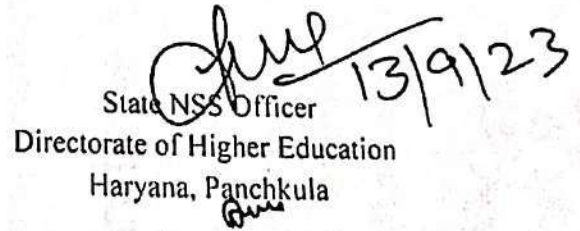 13/9/23
State NSS Officer
Directorate of Higher Education
Haryana, Panchkula